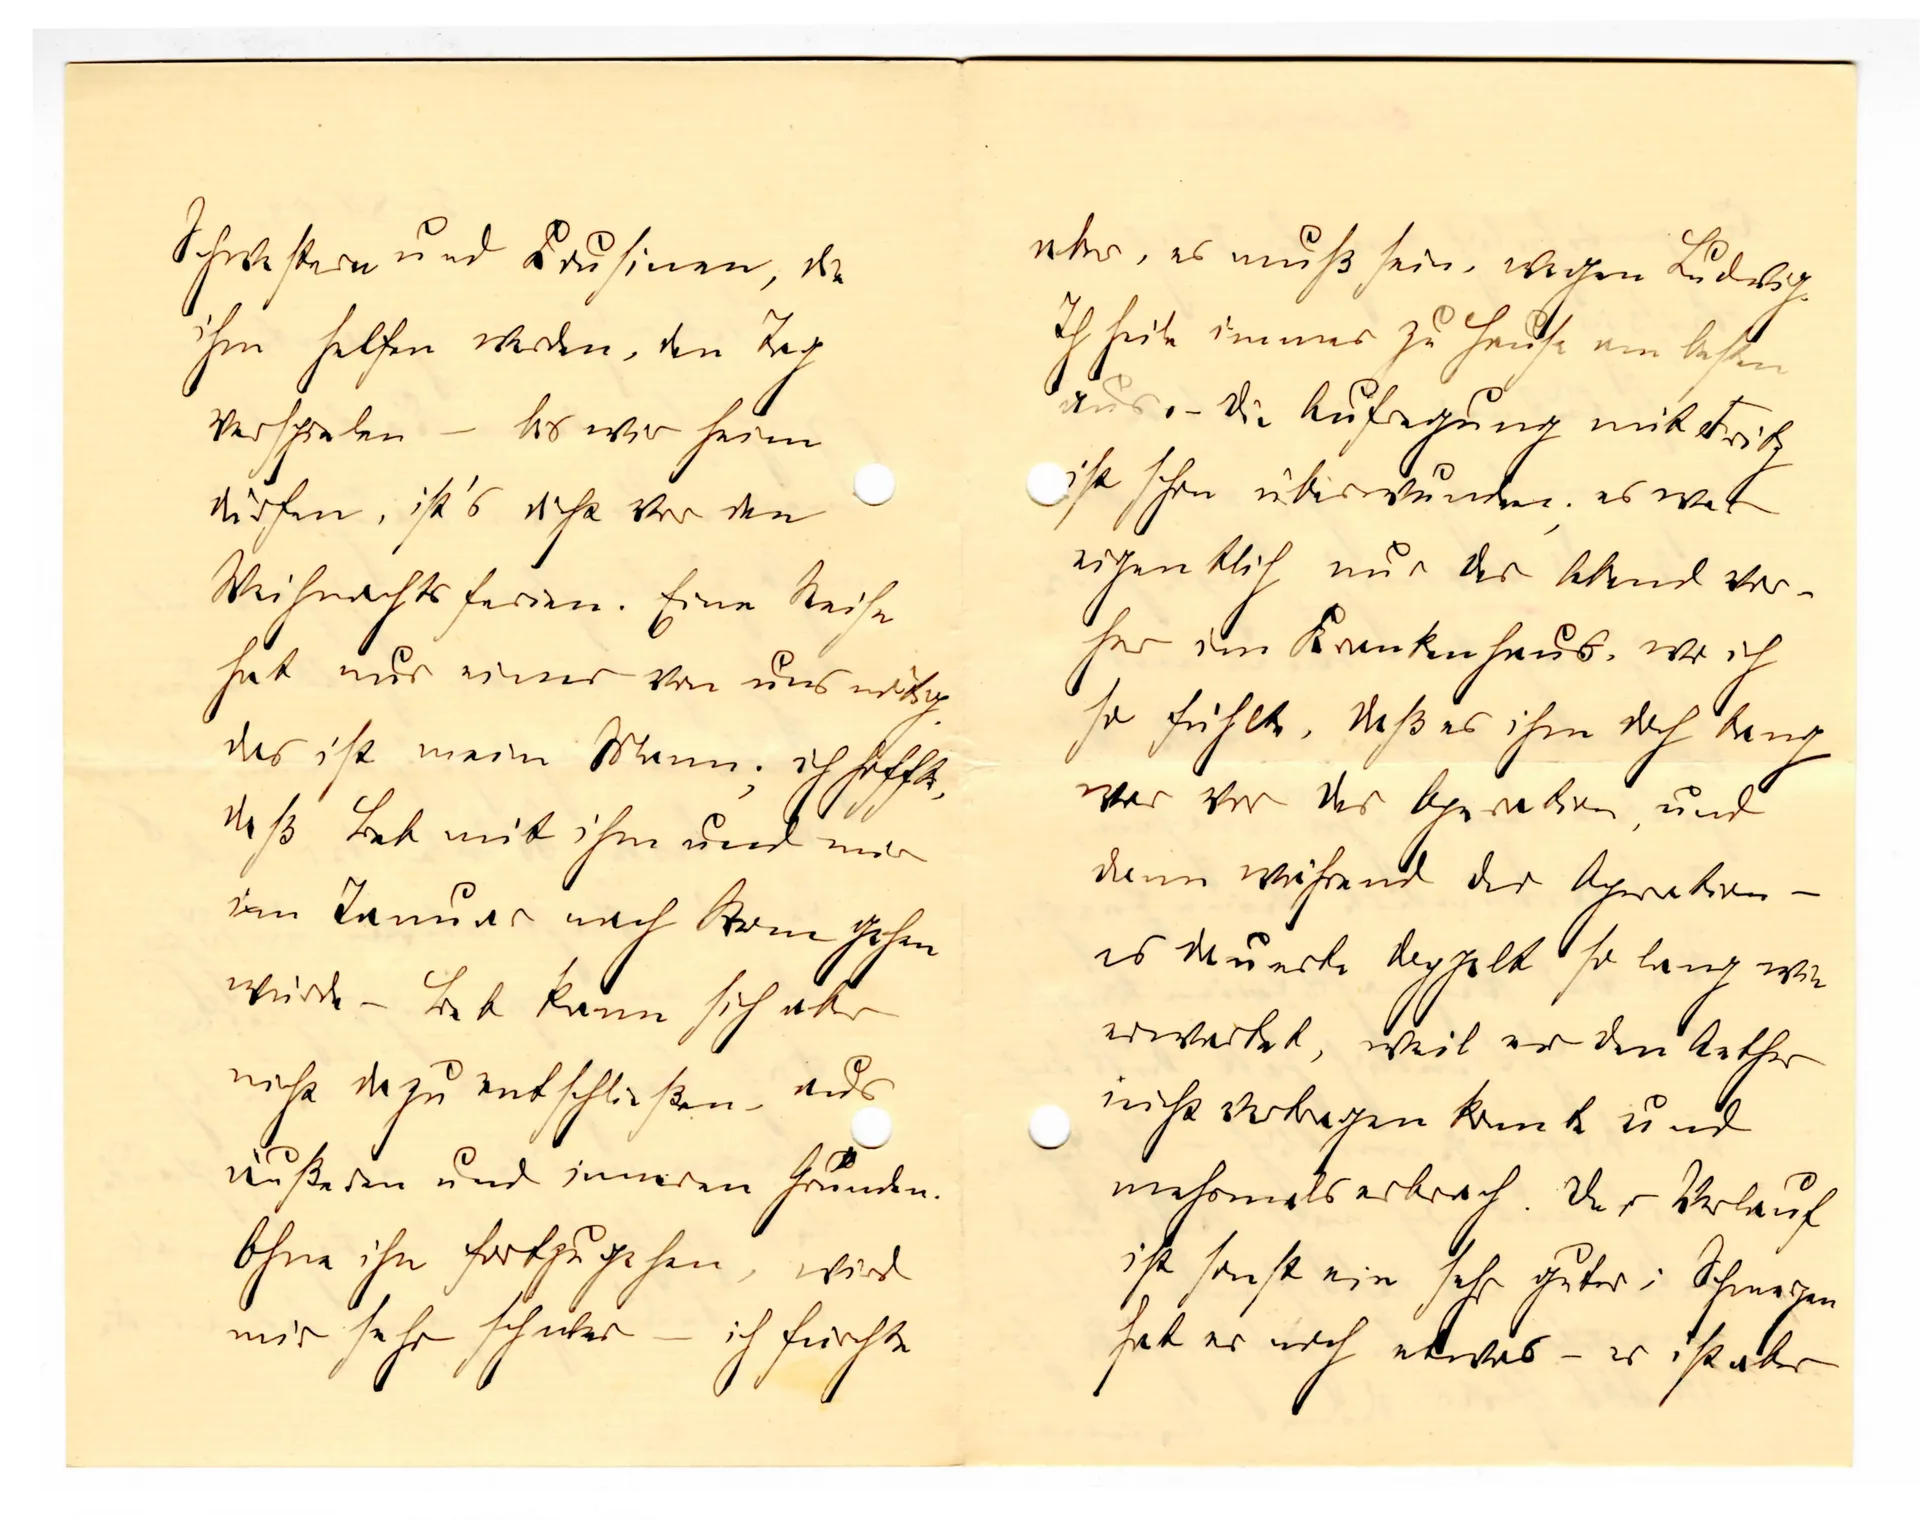 Schwestern und Kousinen, die
ihm helfen werden, den Tag
verspielen – bis wir heim
dürfen, ist's dicht vor den
Weihnachtsferien. Eine Reise
hat nur einer von uns nötig,
das ist mein Mann; ich hoffte,
daß mit ihm und mir
im Januar nach Rom gehen
würde – kann sich aber
nicht dazu entschließen, aus
äußeren und inneren Gründen.
Ohne ihn fortzugehen, wird
mir sehr schwer – ich fürchte
aber, es muß sein, wegen Ludwig.
Ich heile immer zu Hause am besten
aus. – Die Aufregung mit Fritz
ist schon überwunden; es war
eigentlich nur der Abend vor-
her im Krankenhaus, wo ich
so fühlte, daß es ihm doch bang
war vor der Operation, und
dann während der Operation –
es dauerte doppelt so lang wie
erwartet, weil er den Aether
nicht vertragen konnte und
mehrmals erbrach. Der Verlauf
ist sonst ein sehr guter; Schmerzen
hat er noch etwas – er ist aber